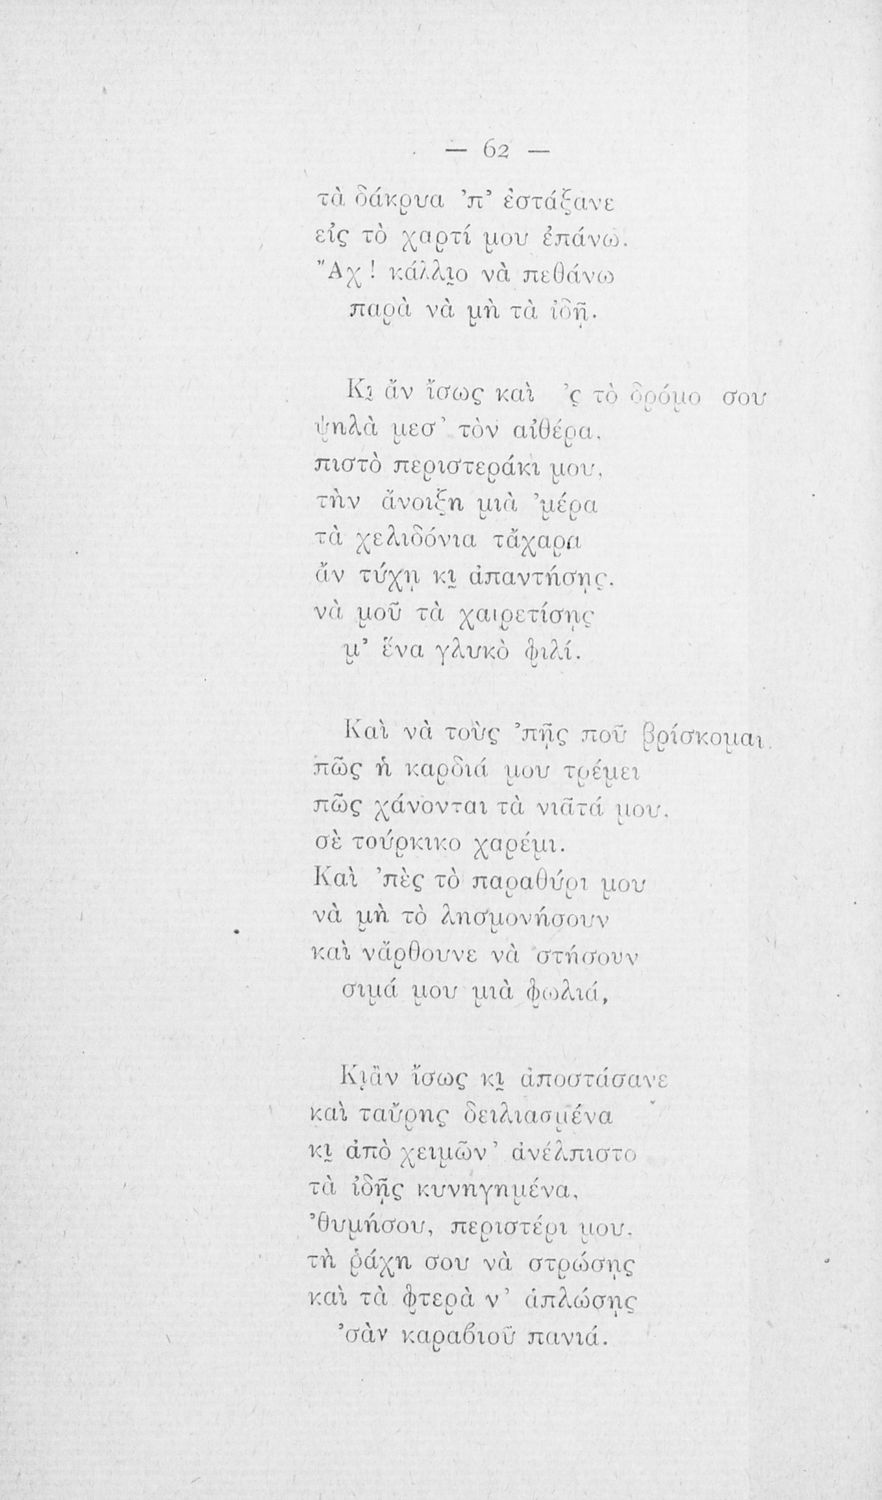 — 62 —
τὰ δάκρυα ’π’ ἐστάξανε
εἰς τὸ χαρτί μου ἐπάνω.
Ἄχ! κάλλιο νὰ πεθάνω
παρὰ νὰ μὴ τὰ ἰδῇ.
Κι ἄν ἴσως καὶ ’ς τὸ δρόμο σου
ψηλὰ μεσ’ τὸν αἰθέρα,
πιστὸ περιστεράκι μου,
τὴν ἄνοιξη μιὰ ’μέρα
τὰ χελιδόνια τἄχαρα
ἄν τύχῃ κι ἀπαντήσῃς,
νὰ μοῦ τὰ χαιρετίσῃς
μ’ ἕνα γλυκὸ φιλί.
Καὶ νὰ τοὺς ’πῇς ποῦ βρίσκομαι,
πῶς ἡ καρδιά μου τρέμει
πῶς χάνονται τὰ νιᾶτά μου,
σὲ τούρκικο χαρέμι.
Καὶ ’πὲς τὸ παραθύρι μου
νὰ μὴ τὸ λησμονήσουν
καὶ νἄρθουνε νὰ στήσουν
σιμά μου μιὰ φωλιά,
Κιἂν ἴσως κι ἀποστάσανε
καὶ ταὕρῃς δειλιασμένα
κι ἀπὸ χειμῶν’ ἀνέλπιστο
τὰ ἰδῇς κυνηγημένα,
’θυμήσου, περιστέρι μου,
τὴ ῥάχη σου νὰ στρώσῃς
καὶ τὰ φτερὰ ν’ ἁπλώσῃς
’σὰν καραβιοῦ πανιά.